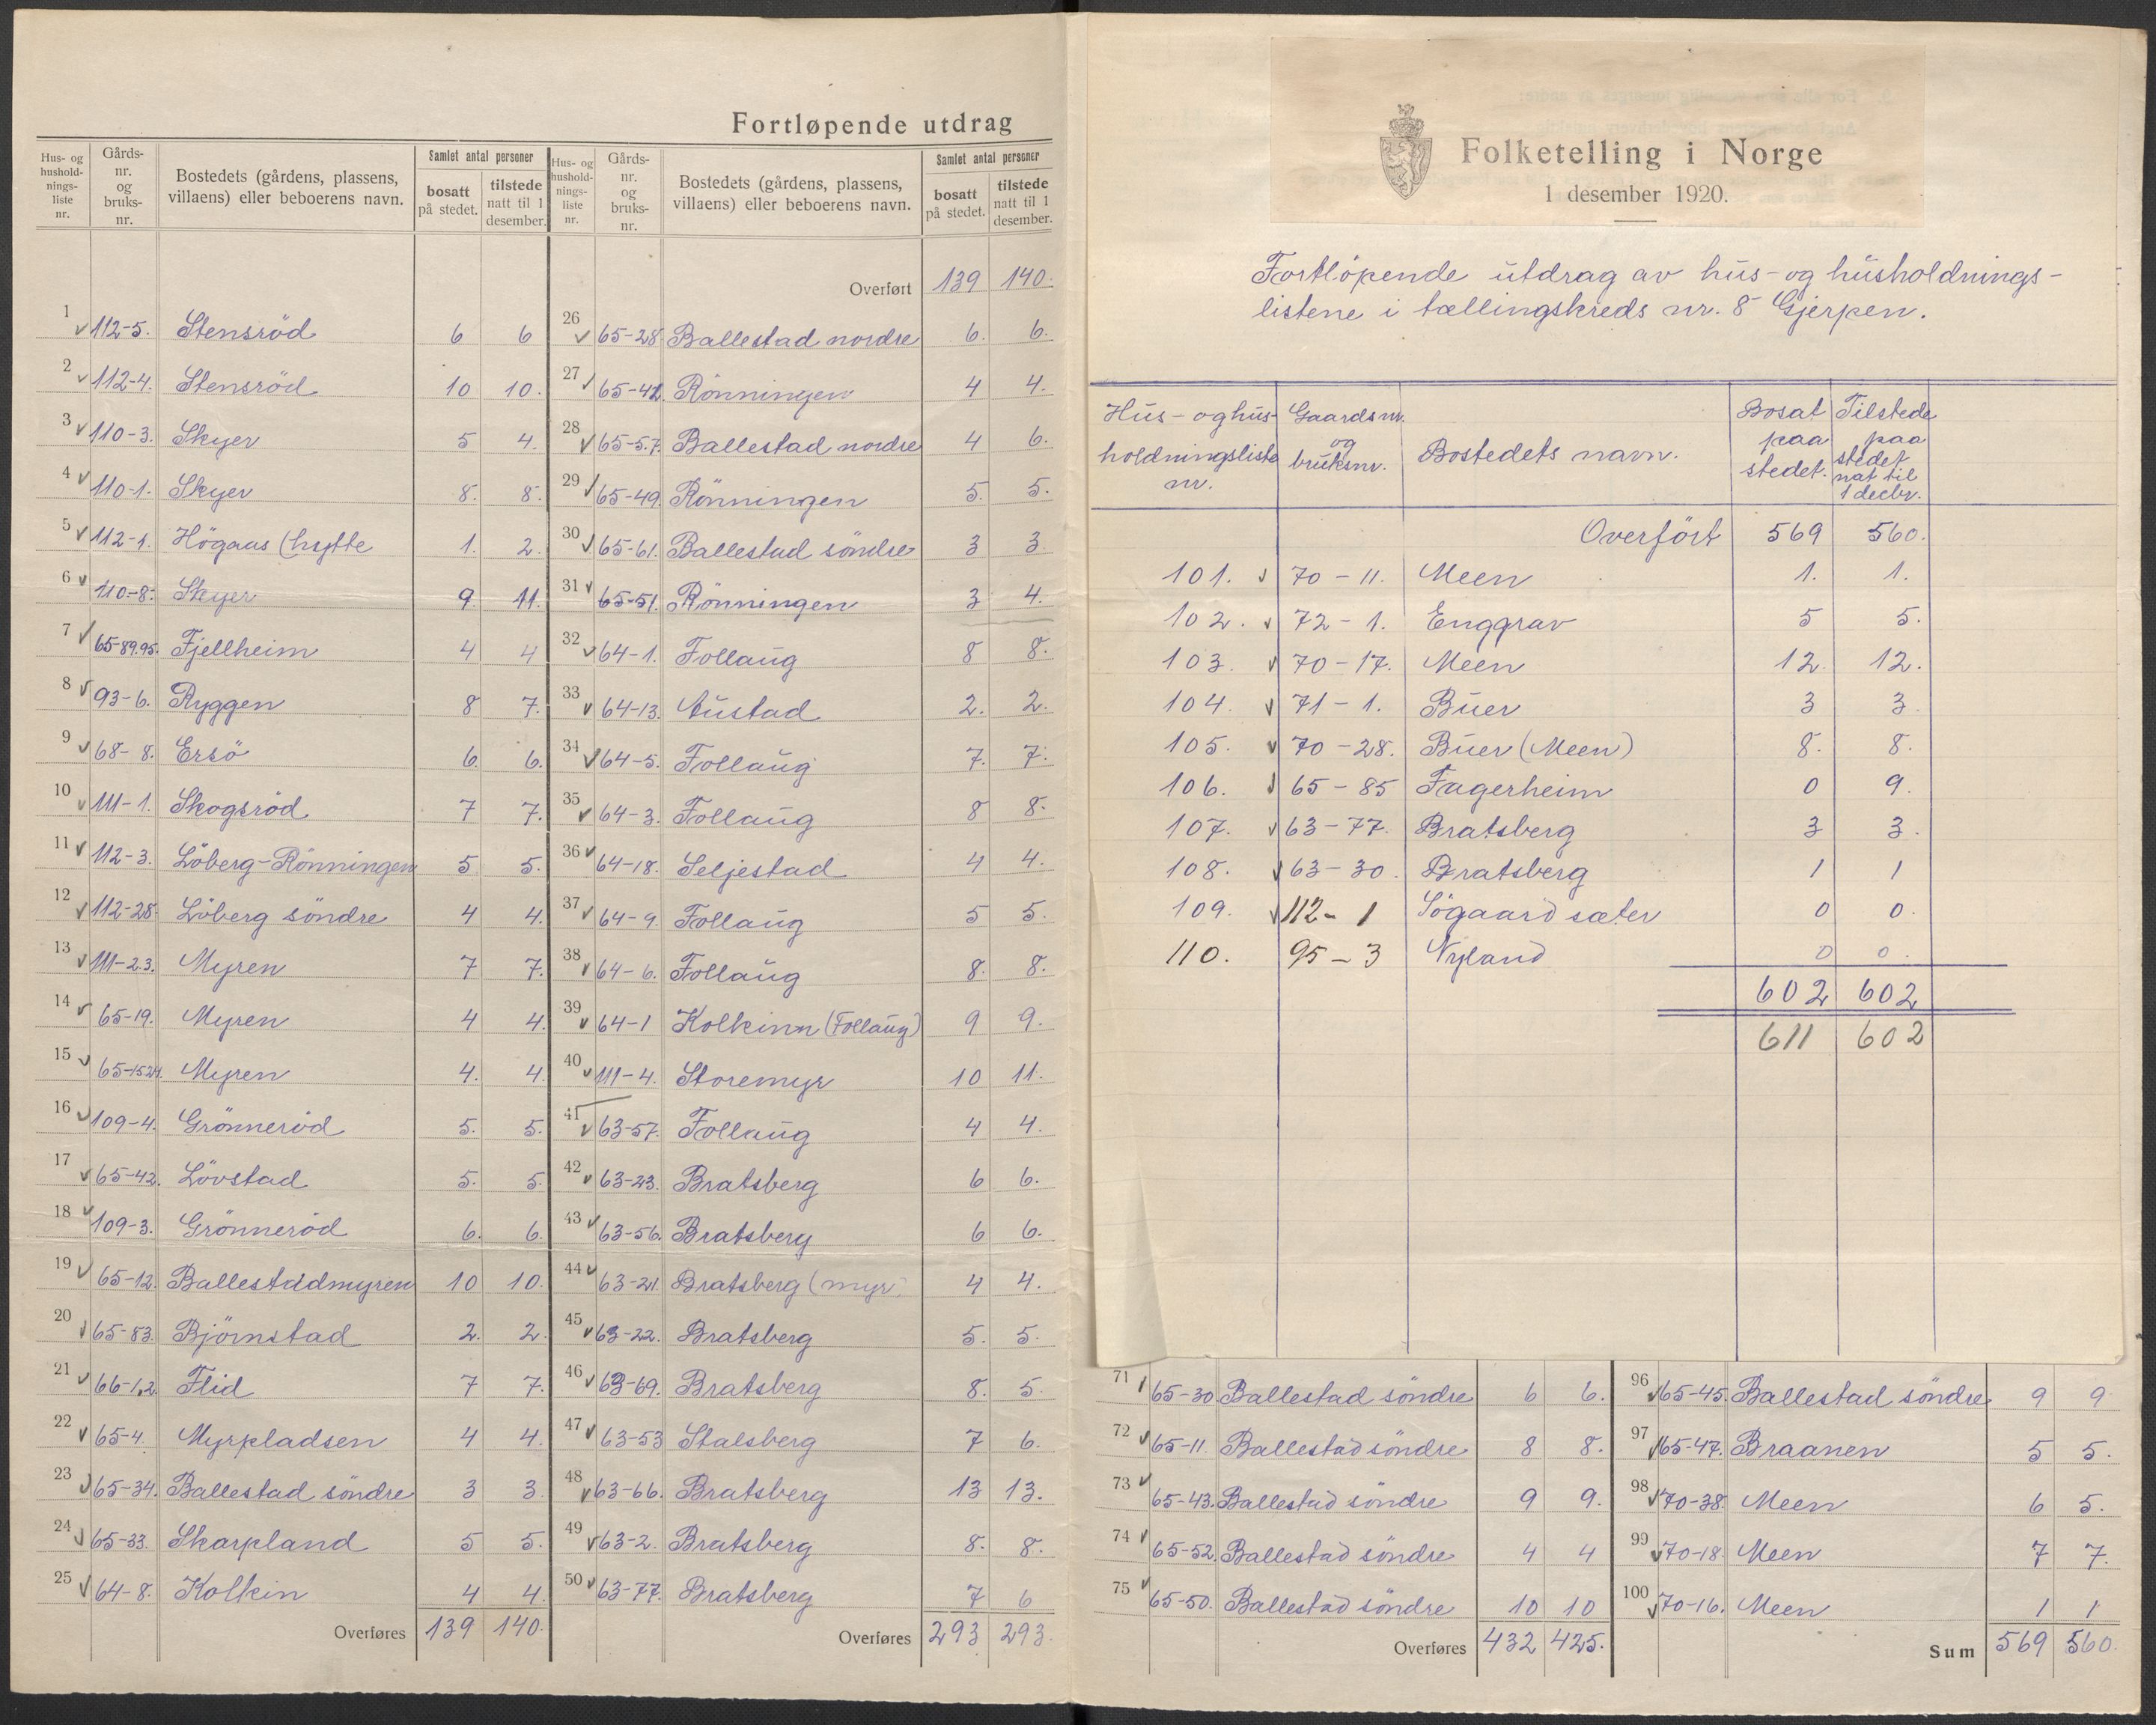 Fortløpende utdrag
Hus- og hushold-nings-liste nr. | Gårds-nr. og bruks-nr. | Bostedets (gårdens, plassens, villaens) eller beboerens navn. | Samlet antal personer | bosatt på stedet. | tilstede natt til 1 desember.
1 112-5. Stensröd 6 6
2 112-4. Stensröd 10 10.
3 110-3. Skyer 5 4.
4 110-1. Skyer 8. 8.
5 112-1. Högaas (hytte 1. 2.
6 110-8. Skyer 9. 11.
7 65-89.95. Fjellheim 4 4
8 93-6. Ryggen 8 7.
9 68-8. Ersö 6 6.
10 111-1. Skogsröd 7 7.
11 112-3. Löberg-Rönningen 5 5.
12 112-28. Löberg söndre 4 4.
13 111-2.3. Myren 7 7.
14 65-19. Myren 4 4.
15 65-15.24. Myren 4. 4.
16 109-4. Grönneröd 5. 5.
17 65-42. Lövstad 5. 5.
18 109-3. Grönneröd 6. 6.
19 65-12. Ballestadmyren 10 10.
20 65-83. Björnstad 2. 2.
21 66-1,2. Flid 7 7.
22 65-4. Myrpladsen 4 4.
23 65-34. Ballestad söndre 3 3.
24 65-33. Skarpland 5 5.
25 64-8. Kolkin 4 4.
Overføres 139 140.
Hus- og hushold-nings-liste nr. | Gårds-nr. og bruks-nr. | Bostedets (gårdens, plassens, villaens) eller beboerens navn. | Samlet antal personer | bosatt på stedet. | tilstede natt til 1 desember.
Overført 139 140.
26 65-28. Ballestad nordre 6. 6.
27 65-42. Rönningen 4 4.
28 65-5.7. Ballestad nordre 4 6.
29 65-49. Rönningen 5. 5.
30 65-61. Ballestad söndre 3 3.
31 65-51. Rönningen 3 4.
32 64-1. Follaug 8 8.
33 64-13. Austad 2. 2.
34 64-5. Follaug 7. 7.
35 64-3. Follaug 8 8.
36 64-18. Seljestad 4 4.
37 64-9. Follaug 5 5.
38 64-6. Follaug 8. 8.
39 64-1 Kolkinn (Follaug) 9 9.
40 111-4. Storemyr 10 11.
41 63-57. Follaug 4 4.
42 63-23. Bratsberg 6 6.
43 63-56. Bratsberg 6 6.
44 63-21. Bratsberg (myr) 4 4.
45 63-22. Bratsberg 5. 5.
46 63-69. Bratsberg 8. 5.
47 63-53 Stalsberg 7 6.
48 63-66. Bratsberg 13 13.
49 63-2. Bratsberg 8. 8.
50 63-77. Bratsberg 7 6
Overføres 293 293.
Folketelling i Norge
1 desember 1920.
Fortlöpende utdrag av hus-og husholdnings-
listene i tællingskreds nr. 8 Gjerpen.
Hus-og hus-holdningsliste nr. | Gaardsnr. og bruksnr. | Bostedets navn. | Bosat paa stedet. | Tilstede paa stedet nat til 1 decbr.
Overfört 569 560.
101. 70-11. Meen 1. 1.
102. 72-1. Enggrav 5 5.
103. 70-17. Meen 12. 12.
104. 71-1. Buer 3 3.
105. 70-28. Buer (Meen) 8. 8.
106. 65-85 Fagerheim 0 9.
107. 63-77. Bratsberg 3 3.
108. 63-30. Bratsberg 1 1
109. 112-1 Sögaard sæter 0 0.
110. 95-3 Nyland 0 0.
602 602
611 602
71 65-30. Ballestad söndre 6 6.
72 65-11. Ballestad söndre 8 8.
73 65-43. Ballestad söndre 9 9.
74 65-52. Ballestad söndre 4 4
75 65-50. Ballestad söndre 10 10
Overføres 432 425.
96 65-45. Ballestad söndre 9 9
97 65-47. Braanen 5 5.
98 70-38. Meen 6 5.
99 70-18. Meen 7 7.
100 70-16. Meen 1 1
Sum 569 560.